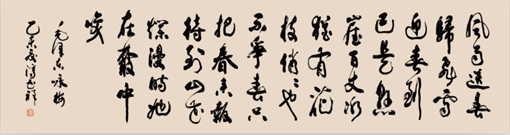 風雨送春
歸飛雪
迎春到
已是懸
崖百丈冰
猶有花
枝俏〻也
不爭春只
把春來報
待到山花
爛漫時她
在叢中
笑
毛澤東詠梅
乙未夏